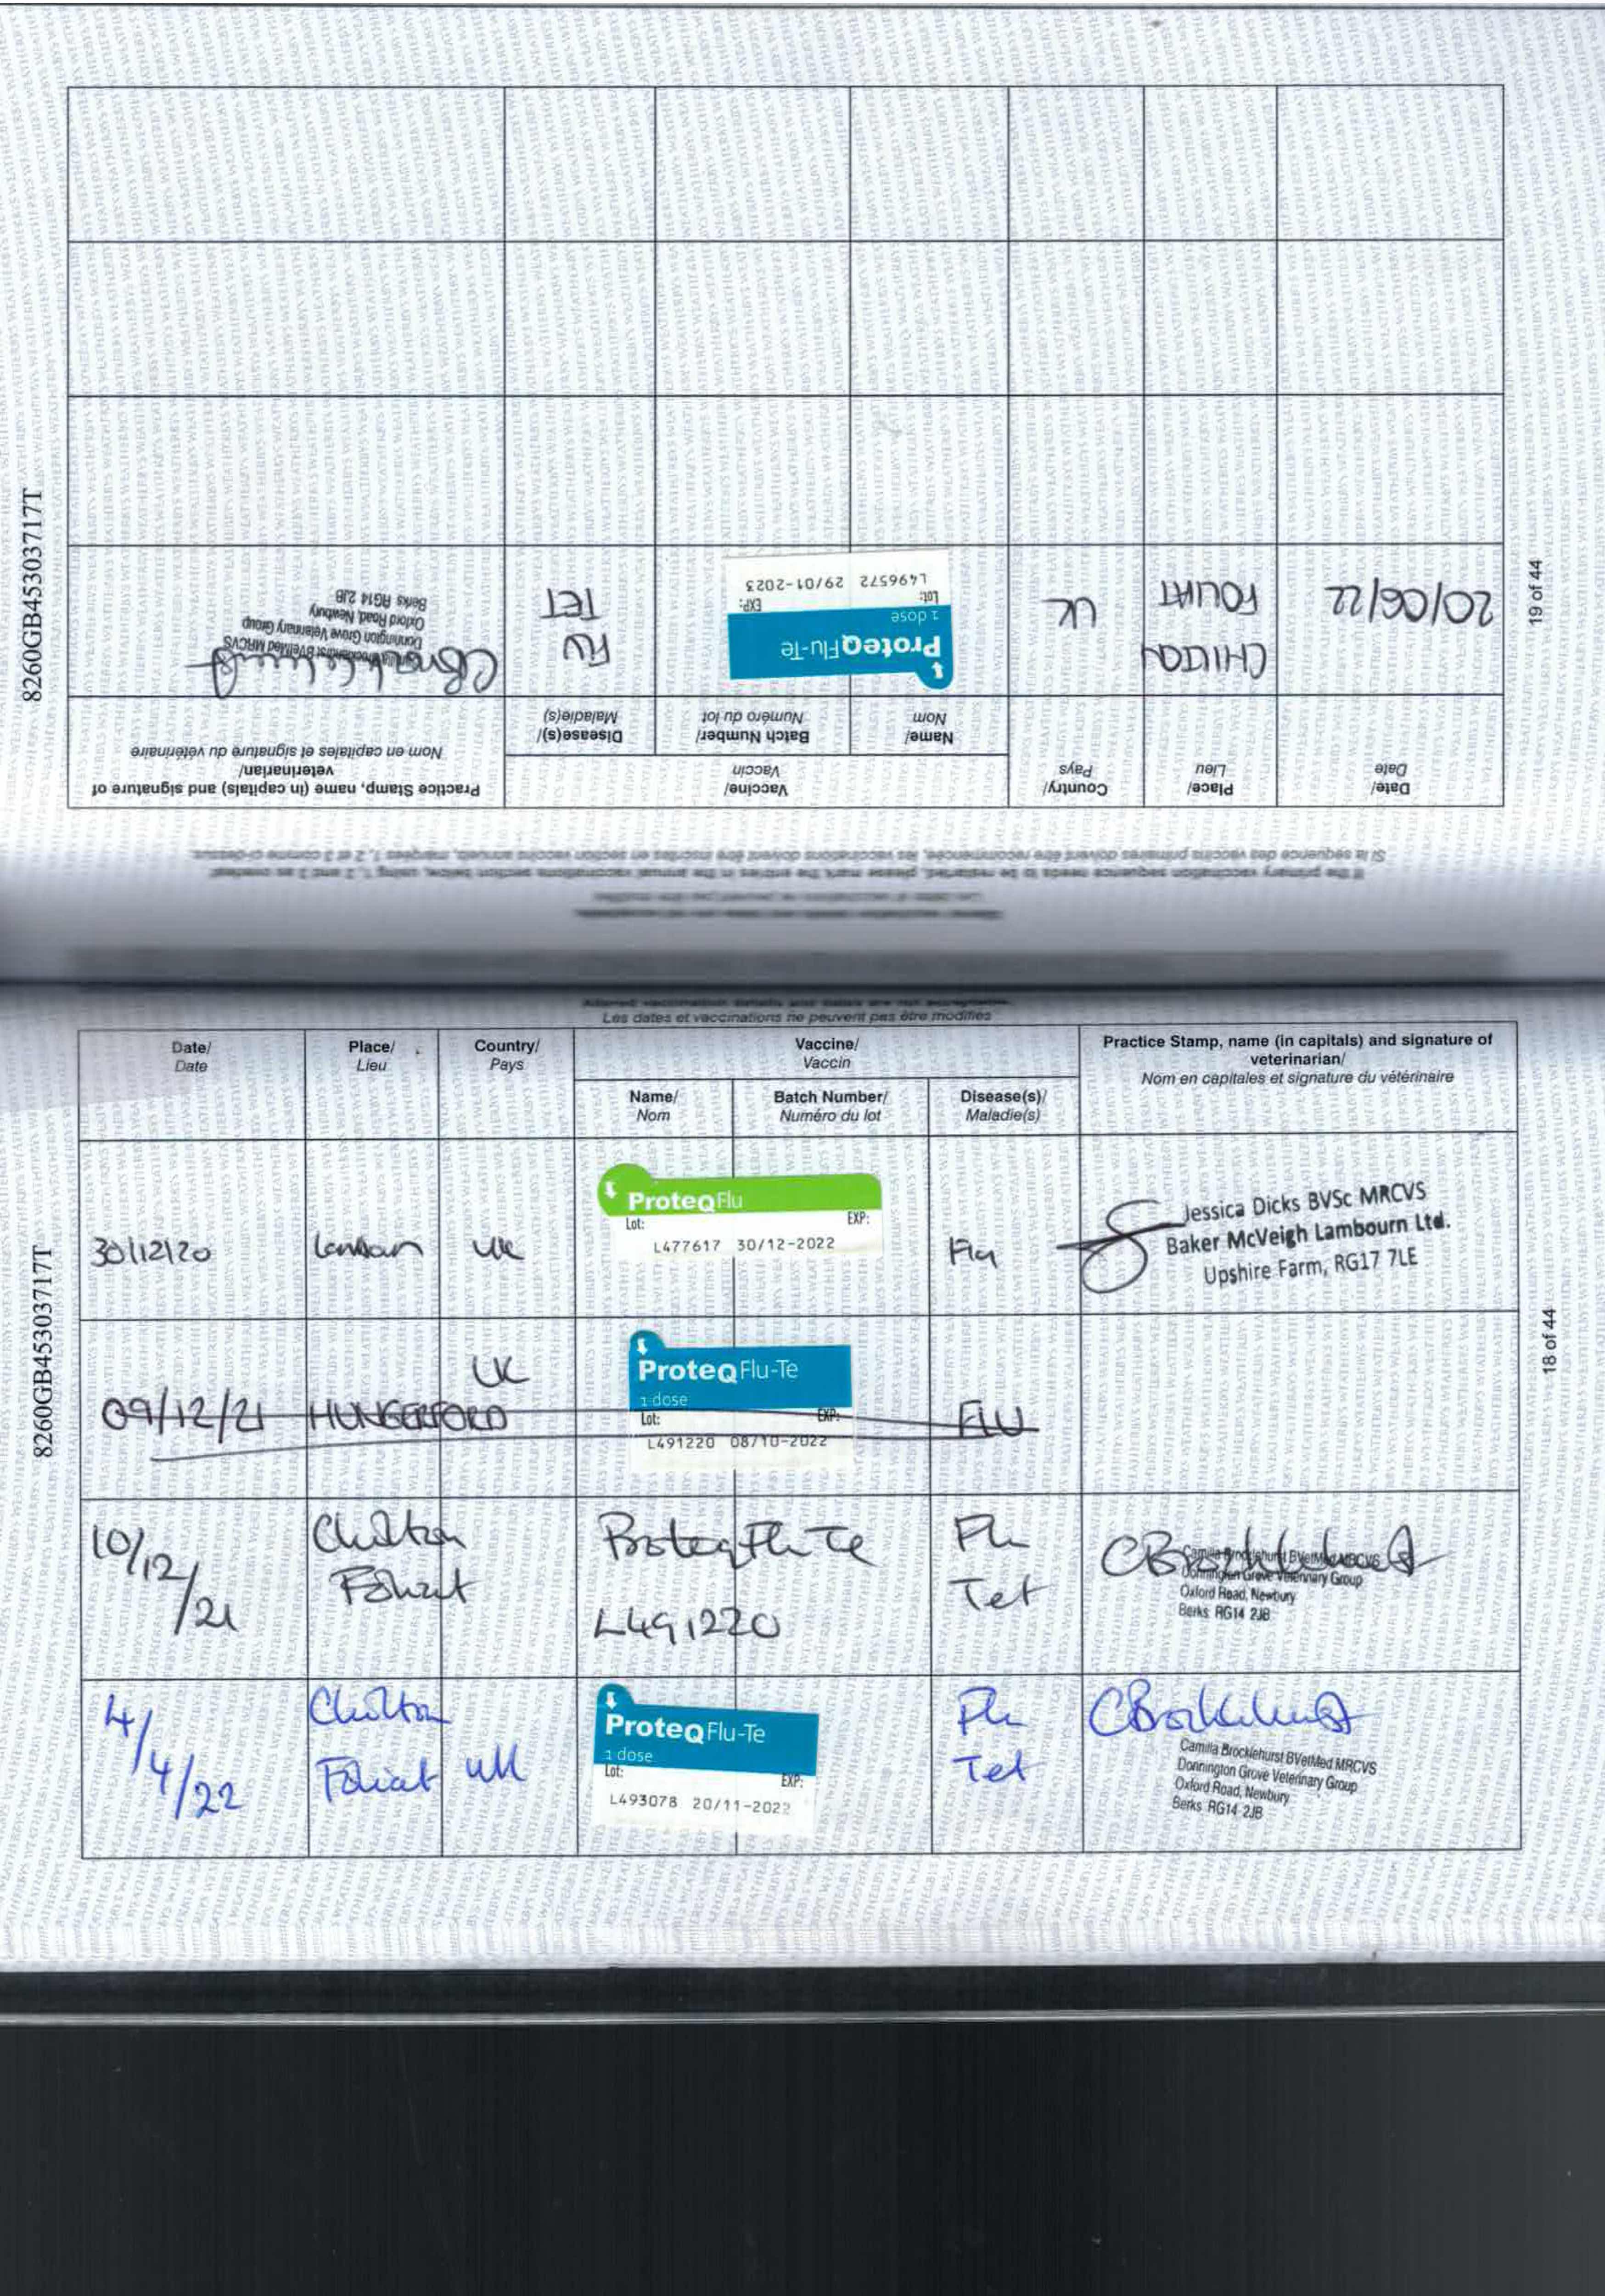 8260GB45303717T
19 of 44
If the primary vaccination sequence needs to be restarted, please mark the entries in the annual vaccinations section below, using 1, 2 and 3 as
Si la séquence des vaccins primaires doivent être recommencée, les vaccinations doivent être inscrites en section vaccins annuels, marquées 1, 2 et 3 comme ci-dessus.
Date/
Date
Place/
Lieu
Country/
Pays
Vaccine/
Vaccin
Name/
Nom
Batch Number/
Numéro du lot
Disease(s)/
Maladie(s)
Practice Stamp, name (in capitals) and signature of
veterinarian/
Nom en capitales et signature du vétérinaire
20/06/22
CHILTON
FOLIAT
UK
ProteqFlu-Te
1 dose
Lot:
EXP:
L496572 29/01-2023
FLU
TET
CBrocklehurst
Camilla Brocklehurst BVetMed MRCVS
Donnington Grove Veterinary Group
Oxford Road, Newbury
Berks RG14 2JB
8260GB45303717T
18 of 44
Altered vaccination details and dates are not acceptable
Les dates et vaccinations ne peuvent pas être modifiés
Date/
Date
Place/
Lieu
Country/
Pays
Vaccine/
Vaccin
Name/
Nom
Batch Number/
Numéro du lot
Disease(s)/
Maladie(s)
Practice Stamp, name (in capitals) and signature of
veterinarian/
Nom en capitales et signature du vétérinaire
30/12/20
UK
ProteqFlu
Lot:
EXP:
L477617 30/12-2022
Flu
Jessica Dicks BVSc MRCVS
Baker McVeigh Lambourn Ltd.
Upshire Farm, RG17 7LE
09/12/21
HUNGERFORD
UK
ProteqFlu-Te
1 dose
Lot:
EXP:
L491220 08/10-2022
FLU
10/12/21
Chilton
Foliat
ProteqFlu Te
L491220
Flu
Tet
CBrocklehurst
Camilla Brocklehurst BVetMed MRCVS
Donnington Grove Veterinary Group
Oxford Road, Newbury
Berks RG14 2JB
4/4/22
Chilton
Foliat
UK
ProteqFlu-Te
1 dose
Lot:
EXP:
L493078 20/11-2022
Flu
Tet
CBrocklehurst
Camilla Brocklehurst BVetMed MRCVS
Donnington Grove Veterinary Group
Oxford Road, Newbury
Berks RG14 2JB